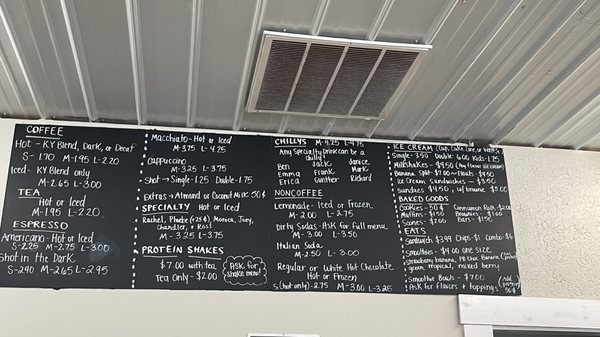 COFFEE
Hot - KY Blend, Dark, or Decaf
S-1.70 M-1.95 L-2.20
Iced - KY Blend only
M-2.65 L-3.00
TEA
Hot or Iced
M-1.95 L-2.20
ESPRESSO
Americano - Hot or Iced
S-2.25 M-2.75 L-3.00
Shot in the Dark
S-2.40 M-2.65 L-2.95
Macchiato - Hot or Iced
M-3.75 L-4.25
Cappuccino
M-3.25 L-3.75
Shot → Single-1.25 Double-1.75
Extras → Almond or Coconut Milk 50¢
SPECIALTY Hot or Iced
Rachel, Phoebe (+25¢), Monica, Joey,
Chandler, + Ross
M-3.25 L-3.75
PROTEIN SHAKES
$7.00 with tea
Tea Only - $2.00
ASK for
shake menu
CHILLYS M-4.25 L-4.75
Any Specialty Drink can be a
chilly
Ben Jack Janice
Emma Frank Mark
Erica Gunther Richard
NONCOFFEE
Lemonade - Iced or frozen
M-2.00 L-2.75
Dirty Sodas - Ask for Full menu
M-3.00 L-3.50
Italian Soda
M-2.50 L-3.00
Regular or White Hot Chocolate
Hot or Frozen
S (hot only)-2.75 M-3.00 L-3.25
ICE CREAM (Cup, Cake Cone or
Single-3.50 Double 6.00 Kids-1.75
Milkshakes - $4.50 (Any flavor
Banana Split - $7.00 Floats - $4.50
Ice Cream Sandwiches - $3.50
Sundaes $4.50, w/ brownie $5.00
BAKED GOODS
Cookies - 50¢ Cinnamon Rolls - $2.00
Muffins - $1.50 Brownies - $1.00
Scones - $2.00 Bars - $1.50
EATS
Sandwich $3.99 Chips-$1 Combo-$6
Smoothies - $4.00 one size,
strawberry banana, PB Choc Banana
green, tropical, mixed berry
Smoothie Bowls - $7.00
Ask for flavors + toppings